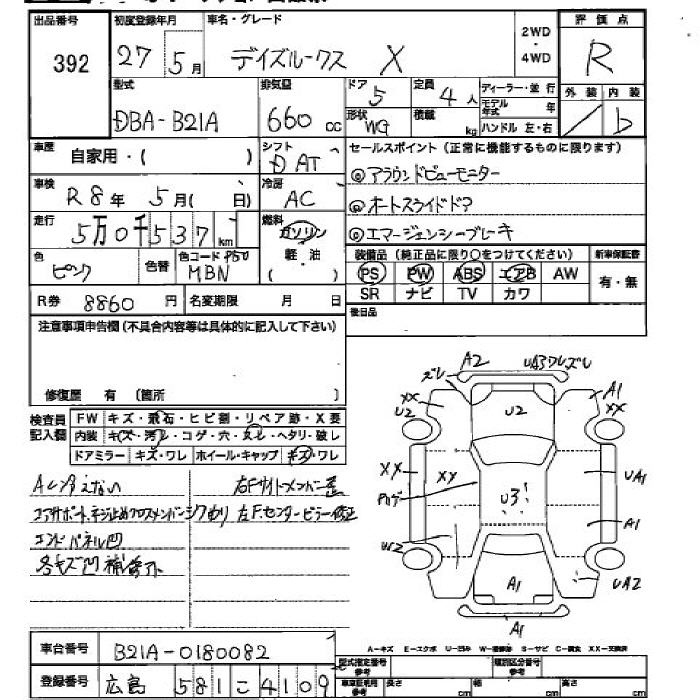 出品番号 392
初度登録年月 27 5月
車名・グレード デイズルークス X
2WD・4WD
評価点 R
外装 内装 b
型式 DBA-B21A
排気量 660 cc
ドア 5
形状 WG
定員 4人
積載 kg
ディーラー・並行
モデル年式 年
ハンドル 左・右
車歴 自家用・( )
シフト DAT
セールスポイント(正常に機能するものに限ります)
車検 R8年 5月( 日)
冷房 AC
◎アラウンドビューモニター
◎オートスライドドア
◎エマージェンシーブレーキ
走行 5万0千537km
燃料 ガソリン 軽・油 ( )
色 ピンク
色替
色コード P50 MBN
装備品(純正品に限り○をつけてください)
新車保証書 有・無
PS PW ABS エアB AW
SR ナビ TV カワ
R券 8860円
名変期限 月 日
後日品
注意事項申告欄(不具合内容等は具体的に記入して下さい)
修復歴 有 〔箇所 〕
検査員記入欄
FW キズ・飛石・ヒビ割・リペア跡・X要
内装 キズ・汚レ・コゲ・穴・スレ・ヘタリ・破レ
ドアミラー キズ・ワレ ホイール・キャップ キズ・ワレ
ACひえない
右Fサイドメンバー歪
コアサポートネジ止めクロスメンバーシワ曲り
左Fセンターピラー修正
エンドパネル凹
各キズ凹補修下
ズレ A2 UA3ワレズレ
XX U2 U2 A1 XX
XX XY U3 UA1
A1
U2 A1 UA2
A1
A-キズ E-エクボ U-凹み W-補修跡 S-サビ C-腐食 XX-交換済
車台番号 B21A-0180082
登録番号 広島 581 こ 4109
型式指定番号 参考
類別区分番号 参考
車庫証明用 参考 長さ cm 幅 cm 高さ cm